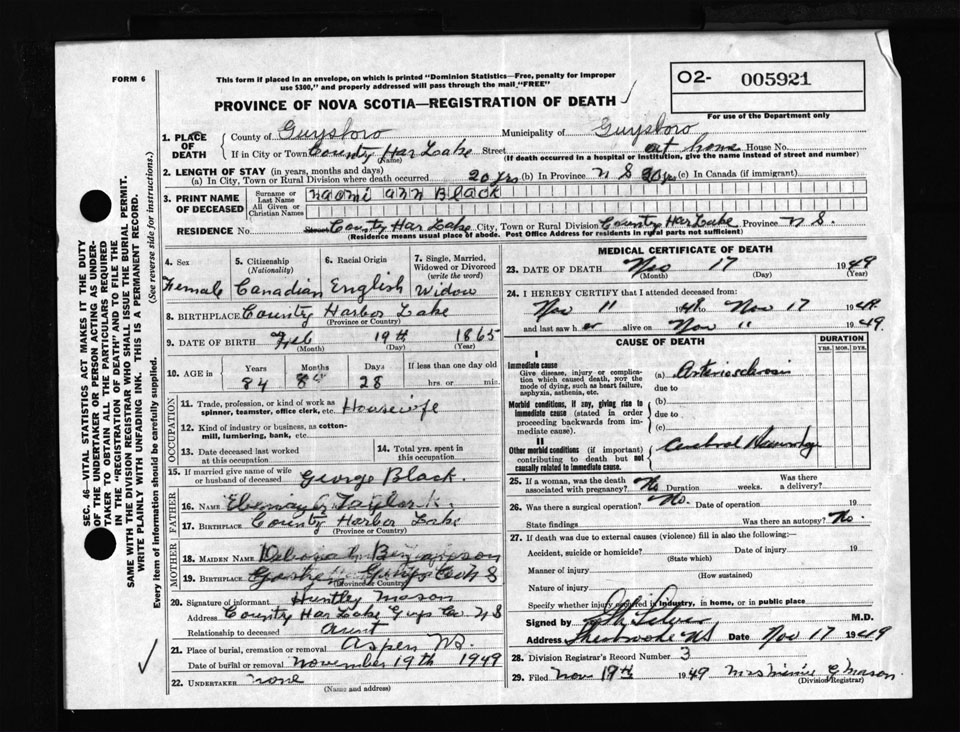 FORM 6
This form if placed in an envelope, on which is printed "Dominion Statistics—Free, penalty for improper
use $300," and properly addressed will pass through the mail "FREE"
O2- 005921
PROVINCE OF NOVA SCOTIA—REGISTRATION OF DEATH
For use of the Department only
1. PLACE OF DEATH
County of Guysboro Municipality of Guysboro
If in City or Town County Har Lake (Name) Street at home House No.
(If death occurred in a hospital or institution, give the name instead of street and number)
2. LENGTH OF STAY (in years, months and days)
(a) In City, Town or Rural Division where death occurred 20 yrs (b) In Province N S (c) In Canada (if immigrant)
3. PRINT NAME OF DECEASED
Surname or Last Name
All Given or Christian Names
Naomi Ann Black
RESIDENCE No. Street County Har Lake City, Town or Rural Division County Har Lake Province N S.
(Residence means usual place of abode. Post Office Address for residents in rural parts not sufficient)
4. Sex
Female
5. Citizenship (Nationality)
Canadian
6. Racial Origin
English
7. Single, Married, Widowed or Divorced (write the word)
Widow
8. BIRTHPLACE County Harbor Lake
(Province or Country)
9. DATE OF BIRTH Feb 19th 1865
(Month) (Day) (Year)
10. AGE in Years Months Days If less than one day old
84 8 28 hrs. or min.
OCCUPATION
11. Trade, profession, or kind of work as
spinner, teamster, office clerk, etc. Housewife
12. Kind of industry or business, as cotton-
mill, lumbering, bank, etc.
13. Date deceased last worked
at this occupation
14. Total yrs. spent in
this occupation
15. If married give name of wife
or husband of deceased George Black
FATHER
16. NAME Taylor
17. BIRTHPLACE County Harbor Lake
(Province or Country)
MOTHER
18. MAIDEN NAME
19. BIRTHPLACE
(Province or Country)
20. Signature of informant Huntley Mason
Address County Har Lake Guys Co. N S
Relationship to deceased Aunt
21. Place of burial, cremation or removal Aspen N S.
Date of burial or removal November 19th 1949
22. UNDERTAKER none
(Name and address)
MEDICAL CERTIFICATE OF DEATH
23. DATE OF DEATH Nov 17 1949
(Month) (Day) (Year)
24. I HEREBY CERTIFY that I attended deceased from:
Nov 11 to Nov 17 19
and last saw her alive on Nov 11 1949.
CAUSE OF DEATH
DURATION
YRS. MOS. DYS.
I
Immediate cause
Give disease, injury or complica-
tion which caused death, not the
mode of dying, such as heart failure,
asphyxia, asthenia, etc.
(a) Arteriosclerosis
due to
Morbid conditions, if any, giving rise to
immediate cause (stated in order
proceeding backwards from im-
mediate cause).
(b)
due to
(c)
II
Other morbid conditions (if important)
contributing to death but not
causally related to immediate cause.
Cerebral Hemorrhage
25. If a woman, was the death
associated with pregnancy? No Duration weeks. Was there
a delivery?
26. Was there a surgical operation? No. Date of operation 19
State findings Was there an autopsy? No.
27. If death was due to external causes (violence) fill in also the following:—
Accident, suicide or homicide? Date of injury 19
(State which)
Manner of injury
(How sustained)
Nature of injury
Specify whether injury occurred in industry, in home, or in public place
Signed by M.D.
Address Sherbrooke N S Date Nov 17 1949
28. Division Registrar's Record Number 3
29. Filed Nov 19th 1949 Mrs Minnie G Mason
(Division Registrar)
SEC. 46—VITAL STATISTICS ACT MAKES IT THE DUTY
OF THE UNDERTAKER OR PERSON ACTING AS UNDER-
TAKER TO OBTAIN ALL THE PARTICULARS REQUIRED
IN THE "REGISTRATION OF DEATH" AND TO FILE THE
SAME WITH THE DIVISION REGISTRAR WHO SHALL ISSUE THE BURIAL PERMIT.
WRITE PLAINLY WITH UNFADING INK. THIS IS A PERMANENT RECORD.
Every item of information should be carefully supplied. (See reverse side for instructions.)